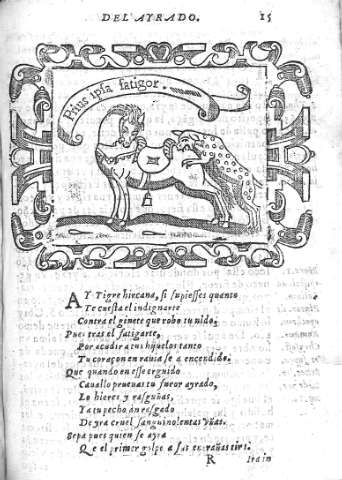 DEL'AYRADO. 15
Prius ipsa fatigor.
AY Tigre hircana, si supiesses quanto
Te cuesta el indignarte
Contra el ginete que robo tu nido,
Pues tras el fatigarte,
Por acudir a tus hijuelos tanto
Tu coraçon en rauia se a encendido.
Que quando en esse erguido
Cauallo prueuas tu furor ayrado,
Lo hieres y rasguñas,
Ya tu pecho an rasgado
De yra cruel sanguinolentas vñas.
Sepa pues quien se ayra
Que el primer golpe a sus entrañas tira.
R Ira in